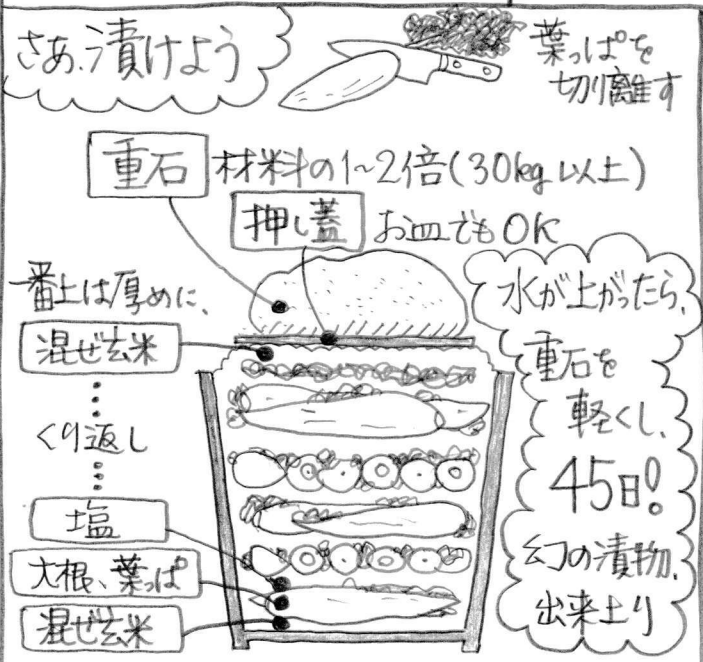 さあ、漬けよう
葉っぱを
切り離す
重石 材料の1〜2倍(30kg以上)
押し蓋 お皿でもOK
一番上は厚めに、
混ぜ玄米
くり返し
塩
大根、葉っぱ
混ぜ玄米
水が上がったら、
重石を
軽くし、
45日!
幻の漬物、
出来上り